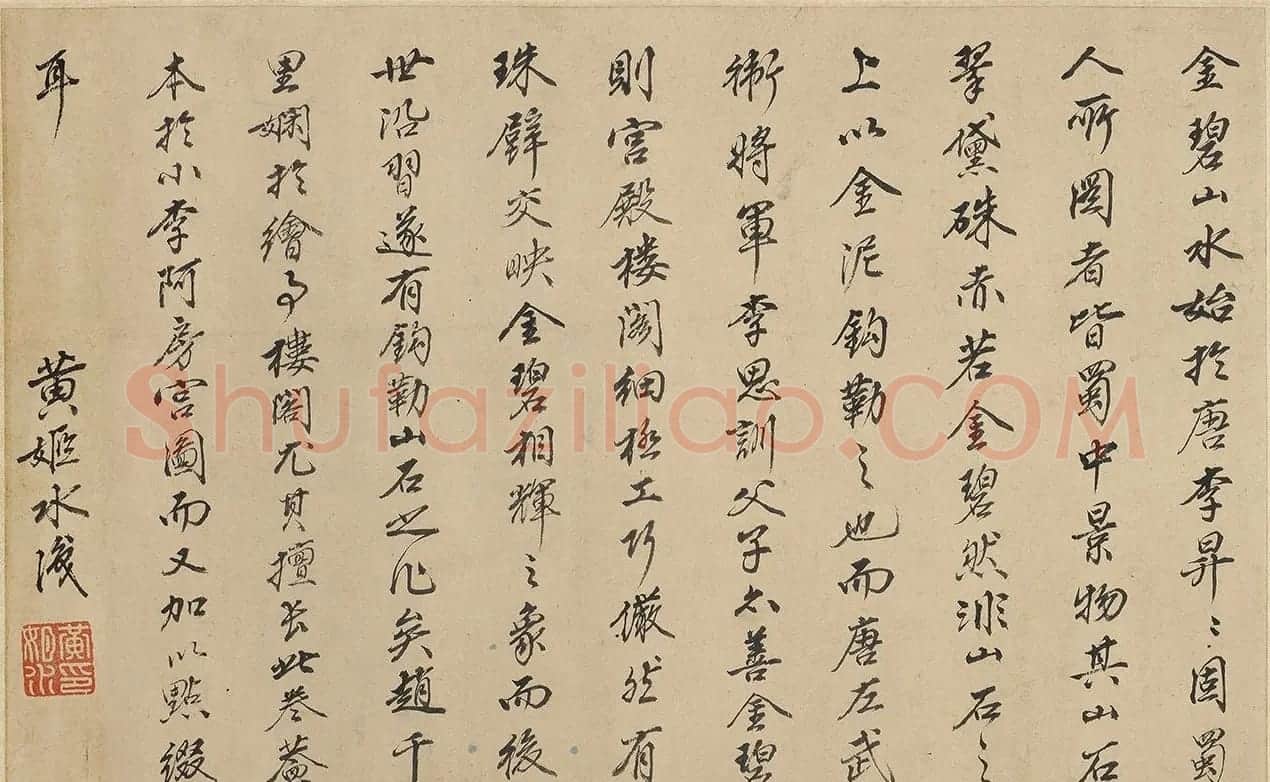 金碧山水始於唐李昇〻固蜀
人所圖者皆蜀中景物其山石
翠黛硃赤若金碧然非山石之
上以金泥鈎勒之也而唐左武
衛將軍李思訓父子亦善金碧
則宫殿楼阁細極工巧儼然有
珠璧交映金碧相輝之象而後
世沿習遂有鈎勒山石之作矣趙千
里嫻於繪事樓閣尤其擅長此卷蓋
本於小李阿房宫圖而又加以點綴
耳
黃姬水識
黃姬水印
Shufaziliao.COM